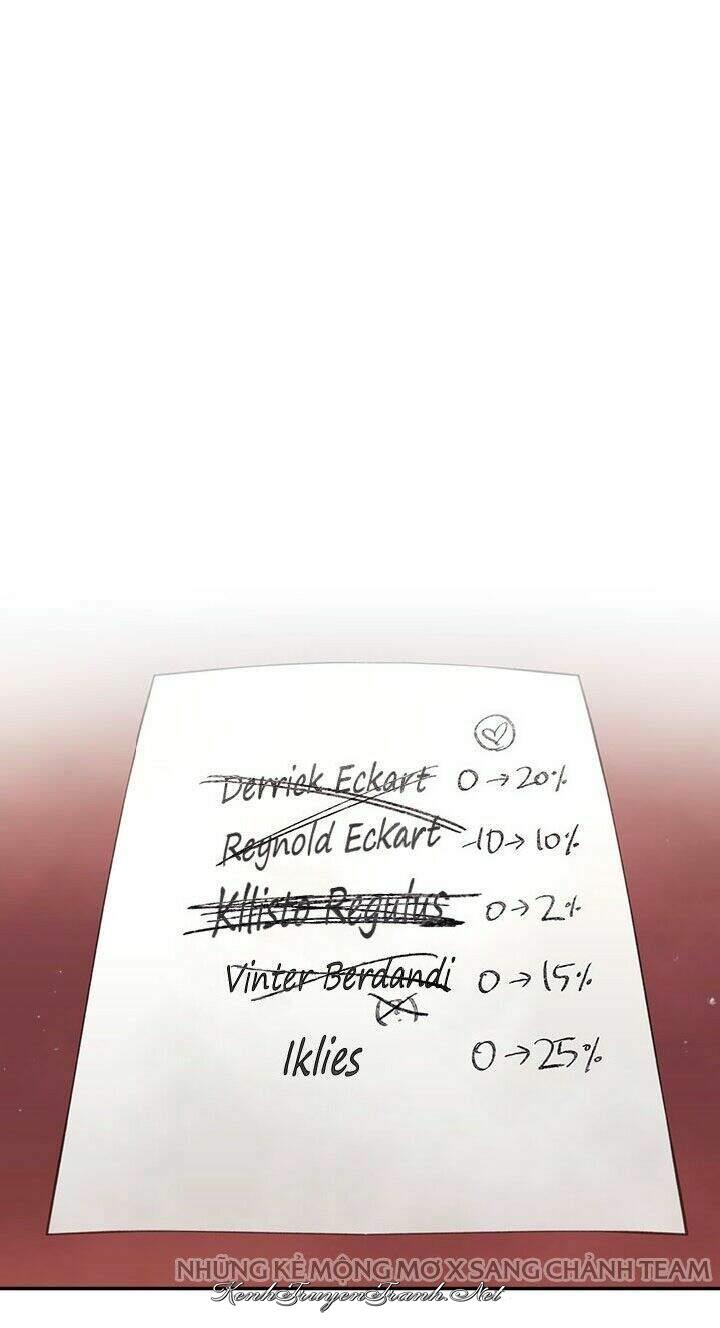 Derrick Eckart 0→20%
Reynold Eckart -10→10%
Kllisto Regulus 0→2%
Vinter Berdandi 0→15%
(?)
Iklies 0→25%
NHỮNG KẺ MỘNG MƠ X SANG CHẢNH TEAM
KenhTruyenTranh.Net